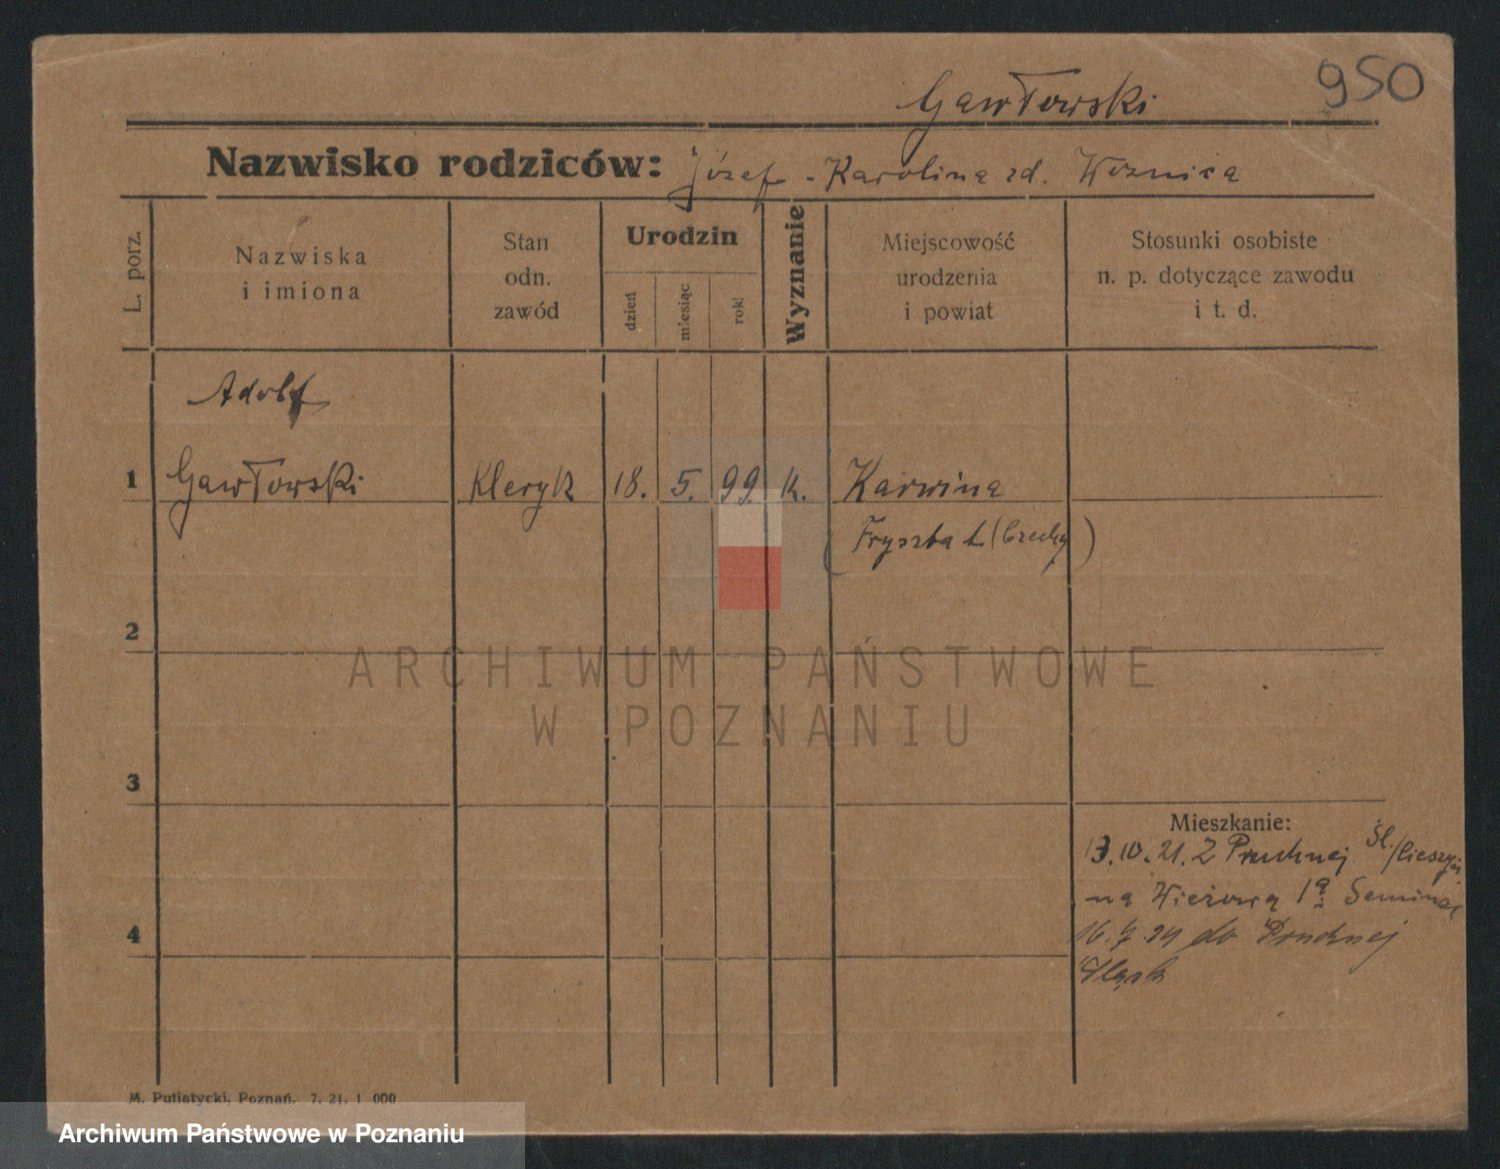 950
Gawłowski
Nazwisko rodziców: Józef - Karolina zd. Woznica
L. porz.
Nazwiska
i imiona
Stan
odn.
zawód
Urodzin
dzień
miesiąc
rok
Wyznanie
Miejscowość
urodzenia
i powiat
Stosunki osobiste
n. p. dotyczące zawodu
i t. d.
Adolf
1 Gawłowski Kleryk 18. 5. 99. k. Karwina
(Frysztat (Czechy)
2
ARCHIWUM PAŃSTWOWE
W POZNANIU
3
Mieszkanie:
13.10.21. Z Pruchnej Śl./Cieszyń
na Wieżową 1a Seminar
4
16.7.24 do Pruchnej
Śląsk
M. Putiatycki, Poznań. 7. 21. 1 000
Archiwum Państwowe w Poznaniu